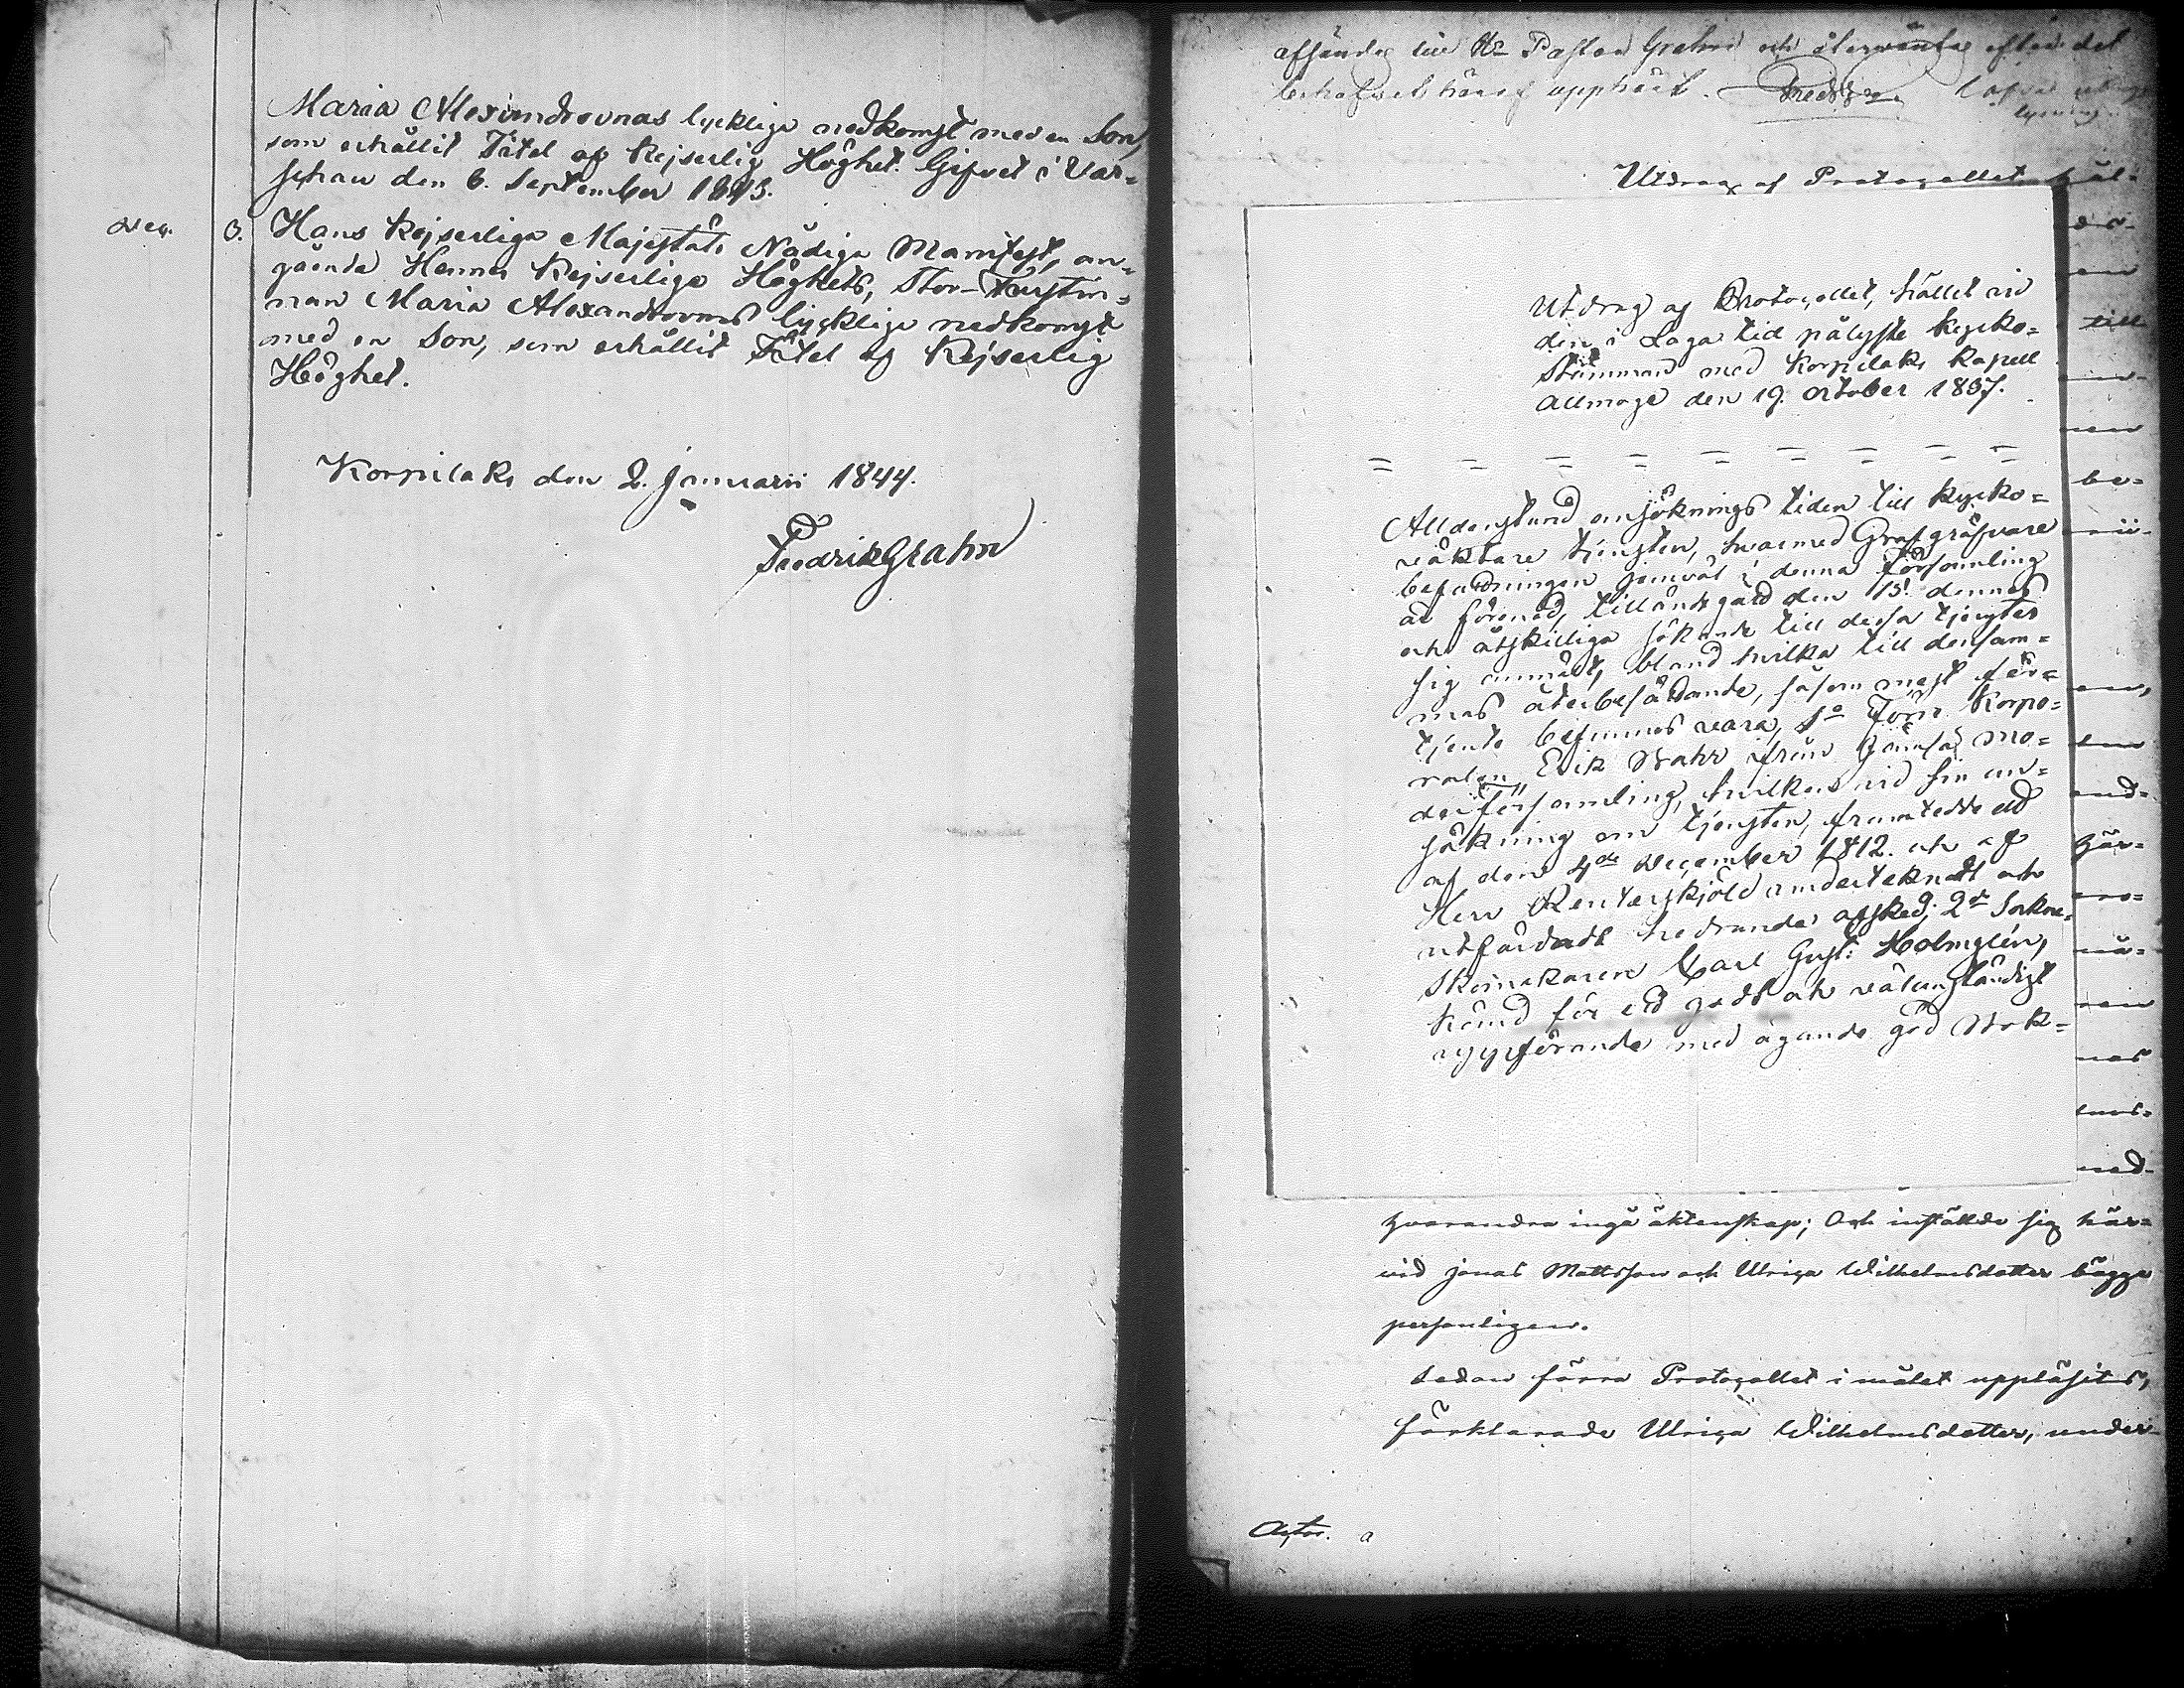 Maria Alexandrovnas lyckliga nedkomst med en Son,
som erhållit Titel af Kejserlig Höghet. Gifvet i Var=
schau den 6. September 1843.
Dec. 3. Hans Kejserliga Majestäts Nådiga Manifest, an=
gående Hennes Kejserliga Höghets, Stor-Furstin=
nan Maria Alexandrovnas lyckliga nedkomst
med en Son, som erhållit Titel af Kejserlig
Höghet.
Korpilaks den 2. Januarii 1844.
Fredrik Grahn
afsändes till Hr Pastor Grahn och återväntas efter det
behofvet häraf upphört.
Utdrag af Protocollet, hål-
Utdrag af Protocollet, hållet vid
den i Laga tid pålyste kyrko=
Stämman med Korpilaks Kapell
Allmoge den 19. October 1837.
till
Alldenstund ansöknings tiden till kyrko=
väktare tjensten, hvarmed Grafgräfvare
befattningen jemväl i denna Församling
är förenad, tilländagått den 15. dennes
och åtskilliga sökande till dessa tjenster
sig anmält, bland hvilka till densam=
mas återbesättande, såsom mest för=
tjente befunnos vara, 1o Förre Korpo=
ralen, Erik Wahr ifrån Jämsä mo=
derförsamling, hvilken vid sin an=
sökning om tjensten, framtedde ett
af den 4de December 1812. och af
Herr Reuterskjöld undertecknadt och
utfärdadt hedrande afsked; 2o Sockne
Skomakaren Carl Gust: Holmglén,
känd för ett godt och välanständigt
uppförande med ägande god Wok=
hvarandra ingå äktenskap; Och inställde sig här=
vid Jonas Mattsson och Ulrica Wilhelmsdotter bägge
personligen.
Sedan förra Protocollet i målet uppläsits,
förklarade Ulrica Wilhelmsdotter, under